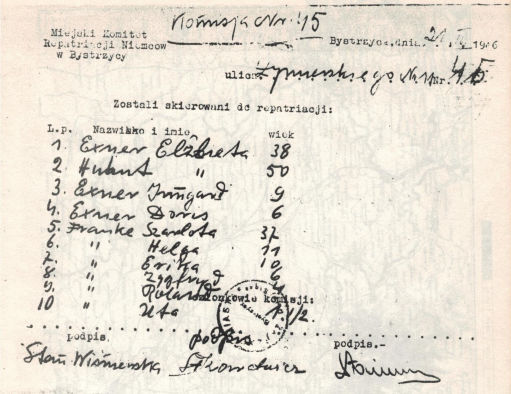 Komisja Nr. 45
Miejski Komitet
Repatriacji Niemcow
w Bystrzycy
Bystrzyca, dnia. 21. 1946
ulica Żymierskiego Nr. 45
Zostali skierowani do repatriacji:
L.p. Nazwisko i imie wiek
1. Exner Elżbieta 38
2. Hubert " 50
3. Exner Irmgard 9
4. Exner Doris 6
5. Franke Szarlota 37
6. " Helga 11
7. " Erika 10
8. " Zygfryd 6
9. " Roland 4
10 " Uta 1/2.
Członkowie komisji:
podpis. podpis podpis.-
Stan Wiśniewska